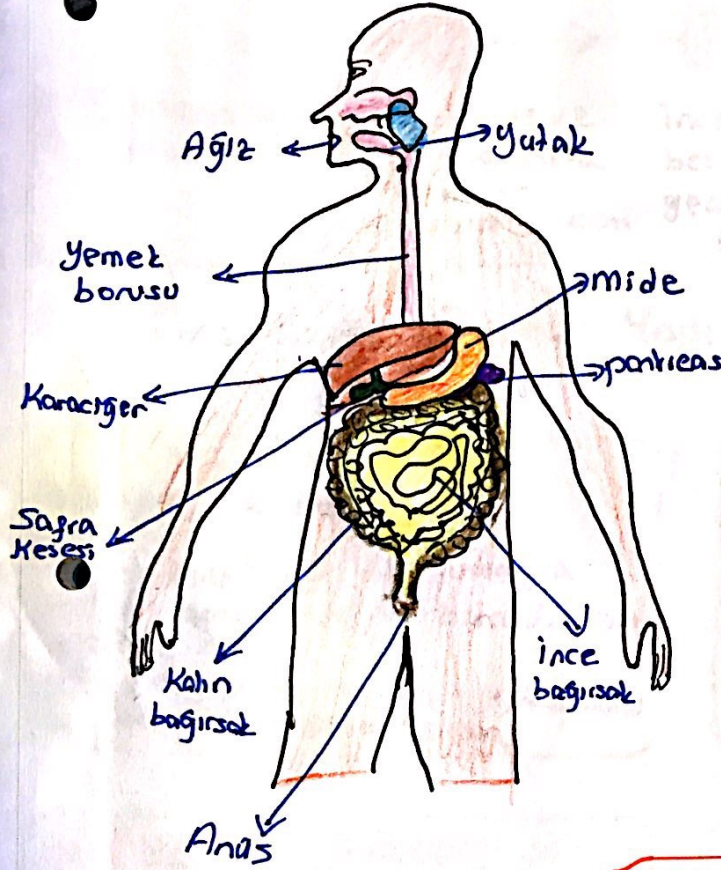 Ağız
yutak
Yemek
borusu
mide
pankreas
Karaciğer
Safra
kesesi
Kalın
bağırsak
ince
bağırsak
Anüs